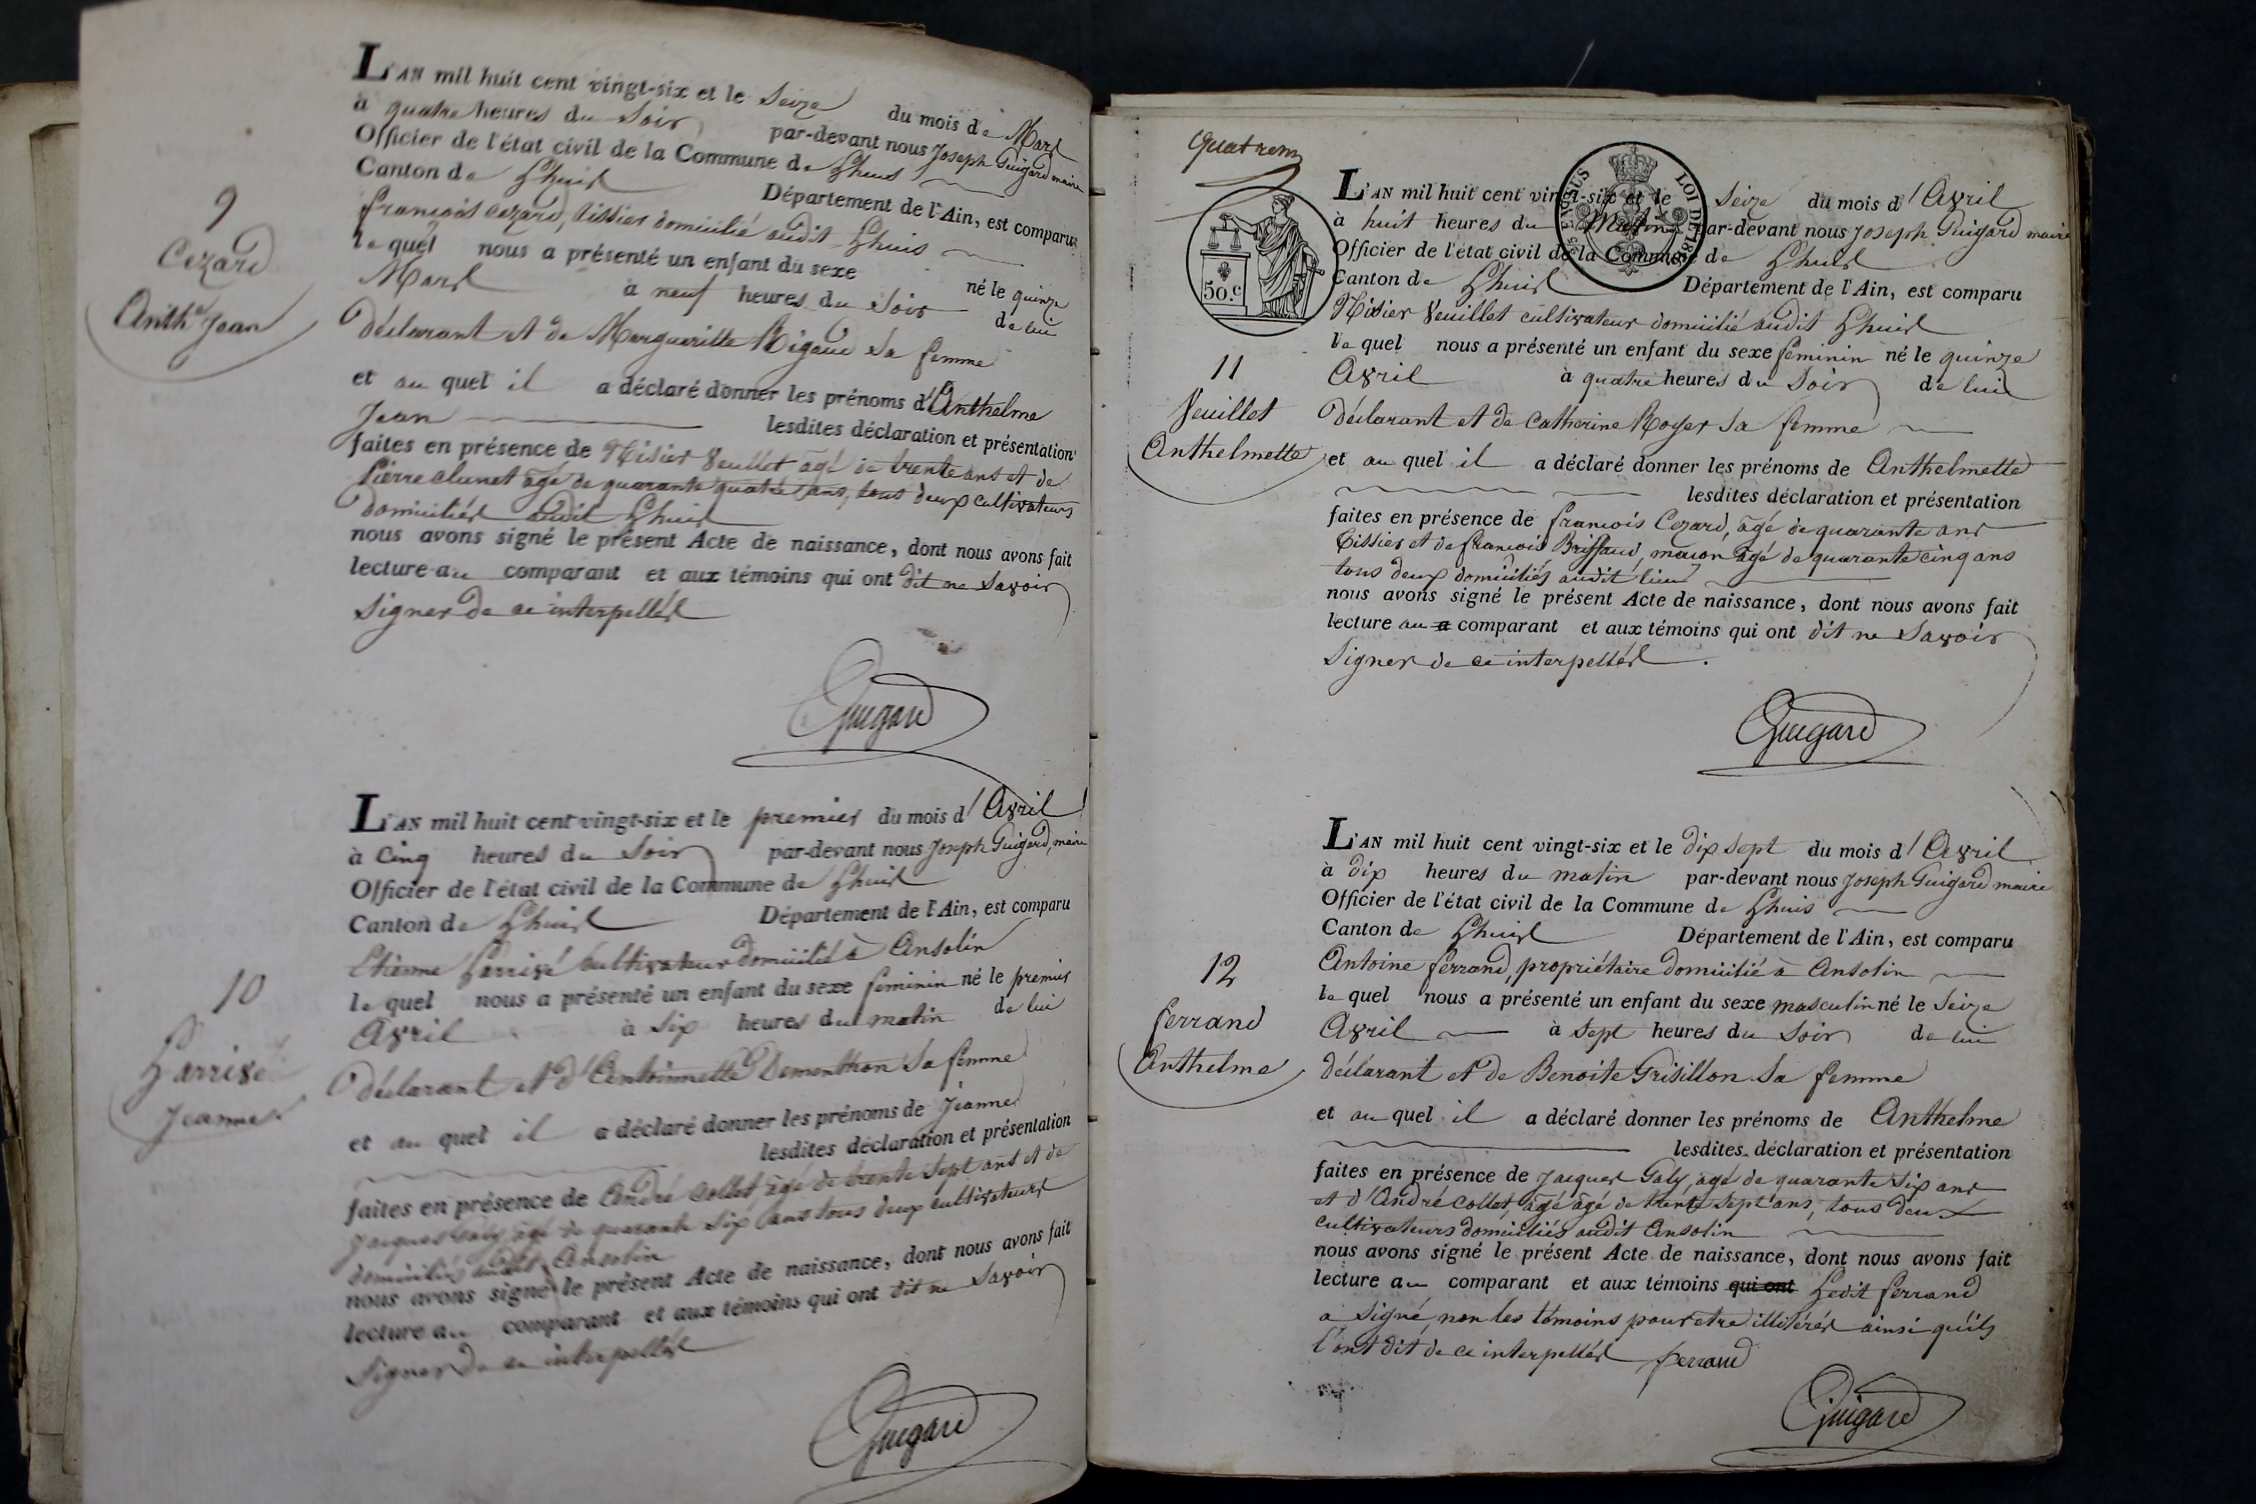 L'AN mil huit cent vingt-six et le Seize du mois de Mars
à quatre heures du Soir par-devant nous Joseph Guigard maire
Officier de l'état civil de la Commune de Lhuis
Canton de Lhuis Département de l'Ain, est comparu
françois Cezard, tissier domicilié audit Lhuis
le quel nous a présenté un enfant du sexe né le quinze
Mars à neuf heures du Soir de lui
9
Cezard
Anthe Jean
déclarant et de Margueritte Rigaud Sa femme
et au quel il a déclaré donner les prénoms d'Anthelme
Jean lesdites déclaration et présentation
faites en présence de Nisier Veuillet âgé de trente ans et de
Pierre Clunet âgé de quarante quatre ans, tous deux cultivateurs
domiciliés audit Lhuis
nous avons signé le présent Acte de naissance, dont nous avons fait
lecture au comparant et aux témoins qui ont dit ne Savoir
Signer de ce interpellés
Guigard
L'AN mil huit cent vingt-six et le premier du mois d'Avril
à Cinq heures du Soir par-devant nous Joseph Guigard, maire
Officier de l'état civil de la Commune de Lhuis
Canton de Lhuis Département de l'Ain, est comparu
Etienne Larrivé Cultivateur domicilié à Ansolin
le quel nous a présenté un enfant du sexe feminin né le premier
Avril à Six heures du matin de lui
10
Larrivé
Jeanne
déclarant et d'Antoinnette Dementhon Sa femme
et au quel il a déclaré donner les prénoms de Jeanne
lesdites déclaration et présentation
faites en présence de André Collet âgé de trente Sept ans et de
Jacques Galy âgé de quarante Six ans tous deux cultivateurs
domiciliés audit Ansolin
nous avons signé le présent Acte de naissance, dont nous avons fait
lecture au comparant et aux témoins qui ont dit ne Savoir
Signer de ce interpellés
Guigard
quatrem
50.c
LOI DE
L'AN mil huit cent vingt-six et le Seize du mois d'Avril
à huit heures du Matin par-devant nous Joseph Guigard maire
Officier de l'état civil de la Commune de Lhuis
Canton de Lhuis Département de l'Ain, est comparu
Nisier Veuillet cultivateur domicilié audit Lhuis
le quel nous a présenté un enfant du sexe feminin né le quinze
Avril à quatre heures du Soir de lui
11
Veuillet
Anthelmette
déclarant et de Catherine Royer Sa femme
et au quel il a déclaré donner les prénoms de Anthelmette
lesdites déclaration et présentation
faites en présence de françois Cezard, âgé de quarante ans
Tissier et de françois Briffaud, maçon âgé de quarante cinq ans
tous deux domiciliés audit lieu
nous avons signé le présent Acte de naissance, dont nous avons fait
lecture au a comparant et aux témoins qui ont dit ne Savoir
Signer de ce interpellés.
Guigard
L'AN mil huit cent vingt-six et le dix Sept du mois d'Avril
à dix heures du matin par-devant nous Joseph Guigard maire
Officier de l'état civil de la Commune de Lhuis
Canton de Lhuis Département de l'Ain, est comparu
Antoine ferrand, propriétaire domicilié à Ansolin
le quel nous a présenté un enfant du sexe masculin né le Seize
Avril à Sept heures du Soir de lui
12
ferrand
Anthelme
déclarant et de Benoite Grisillon Sa femme
et au quel il a déclaré donner les prénoms de Anthelme
lesdites déclaration et présentation
faites en présence de Jacques Galy, âgé de quarante Six ans
et d'André Collet, âgé âgé de trente Sept ans, tous deux
cultivateurs domiciliés audit Ansolin
nous avons signé le présent Acte de naissance, dont nous avons fait
lecture au comparant et aux témoins qui ont Ledit ferrand
a Signé, non les témoins pour etre illitérés ainsi qu'ils
l'ont dit de ce interpellés ferrand
Guigard